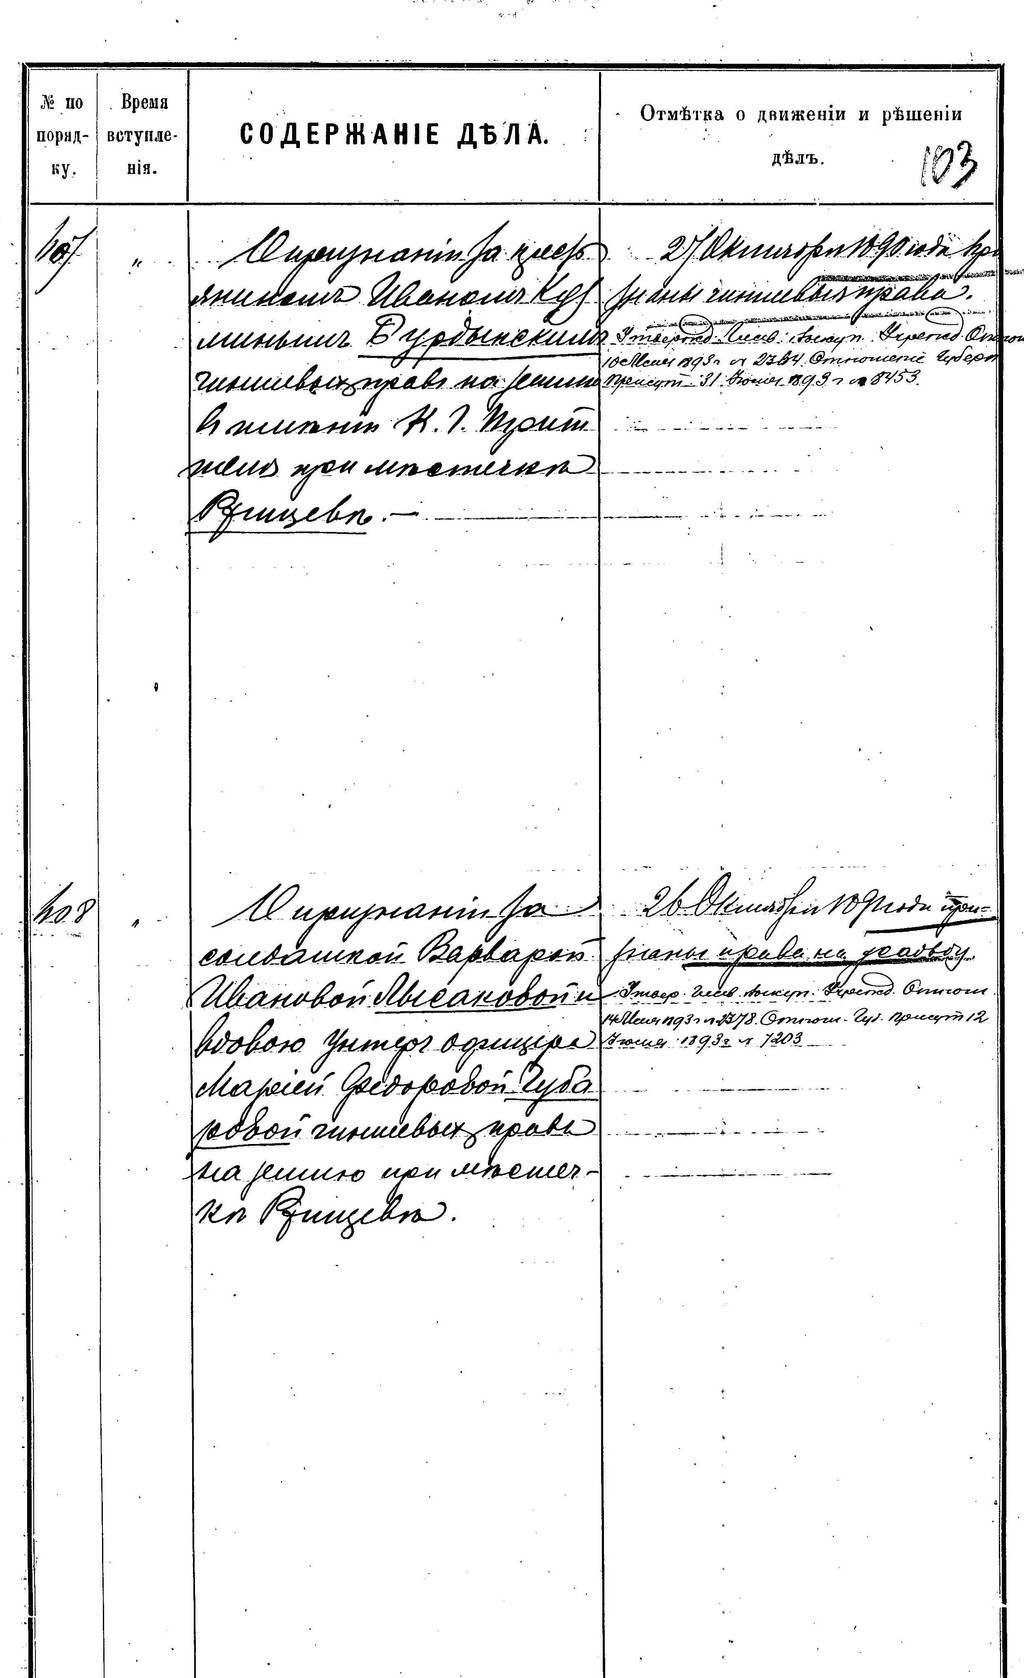 № по поряд-ку.
Время вступле-нія.
СОДЕРЖАНІЕ ДѢЛА.
Отмѣтка о движеніи и рѣшеніи дѣлъ.
103
407
„
О признаніи за крестъ
яниномъ Иваномъ Куз
минымъ Бурдынскимъ
чиншевыхъ правъ на землю
въ имѣніи К. І. Прит
при мѣстечкѣ
Ржищевѣ. —
27 Октября 1890 года При
знаны чиншевыя права.
Утвержд. Указ.
10 Мая 1893 г № 2364. Отношеніе Губерн
Присут 31 1893 г № 8453.
408
„
О признаніи за
солдаткой Варварой
Ивановой Лысаковой и
вдовою Унтеръ офицера
Маріей Федоровой Губа
ровой чиншевыхъ правъ
на землю при мѣстеч-
кѣ Ржищевѣ.
26 Октября года при-
знаны права на усадьбу.
14 Мая 1893 г № 2378. Отнош. Губ. Присут 12
1893 г № 7203